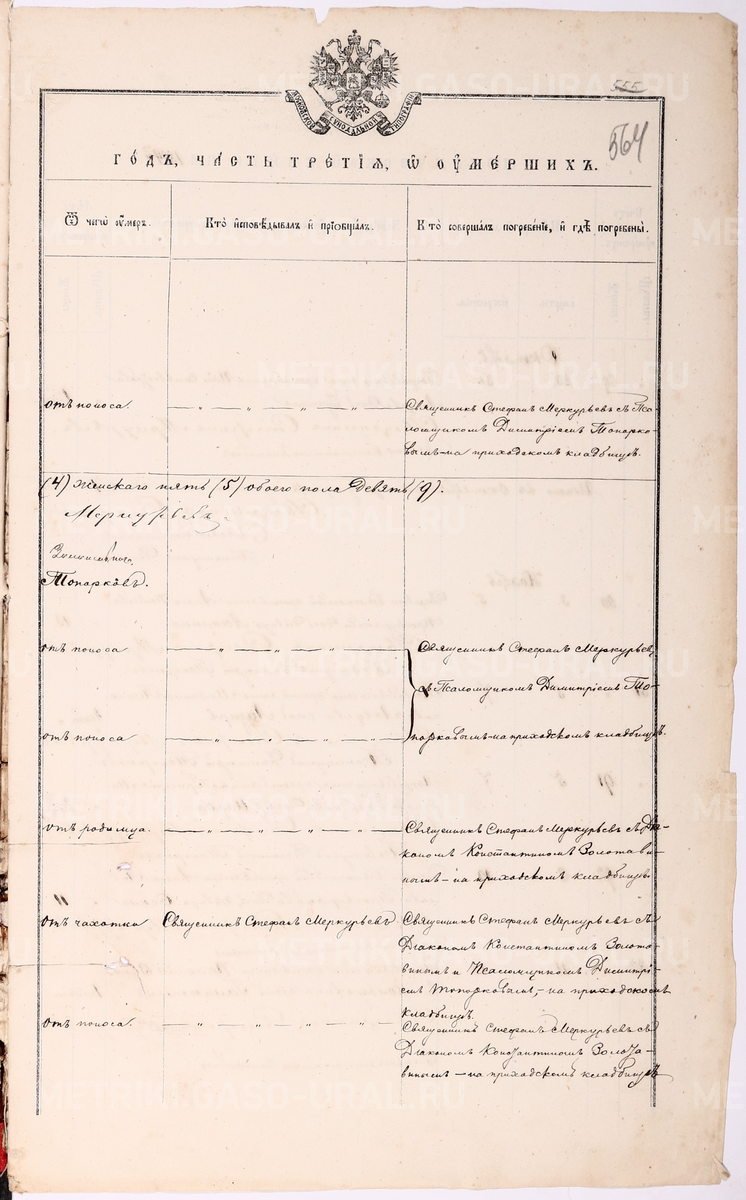 555
564
Го́дъ, ча́сть тре́тїѧ, ѡ҆ ᲂу҆ме́ршихъ.
Ѿ чегѡ̀ ᲂу҆́меръ.
Кто̀ и҆сповѣ́дывалъ и҆ прїѡбща́лъ.
Кто̀ соверша́лъ погребе́нїе, и҆ гдѣ̀ погребены̀.
отъ поноса.
Священникъ Стефанъ Меркурьевъ съ Пса-
ломщикомъ Димитріемъ Топорко-
вымъ-на приходскомъ кладбищѣ.
(4) женскаго пять (5) обоего пола девять (9).
Меркурьевъ
Топорковъ.
отъ поноса
Священникъ Стефанъ Меркурьевъ
съ Псаломщикомъ Димитріемъ То-
отъ поноса
порковымъ-на приходскомъ кладбищѣ.
отъ родимца.
Священникъ Стефанъ Меркурьевъ съ Діа-
кономъ Константиномъ Золотави-
нымъ-на приходскомъ кладбищѣ.
отъ чахотки
Священникъ Стефанъ Меркурьевъ
Священникъ Стефанъ Меркурьевъ съ
Діакономъ Константиномъ Золота-
винымъ и Псаломщикомъ Димитрі-
емъ Топорковымъ,-на приходскомъ
кладбищѣ.
отъ поноса.
Священникъ Стефанъ Меркурьевъ съ
Діакономъ Константиномъ Золота-
винымъ-на приходскомъ кладбищѣ
METRIKI.GASO-URAL.RU